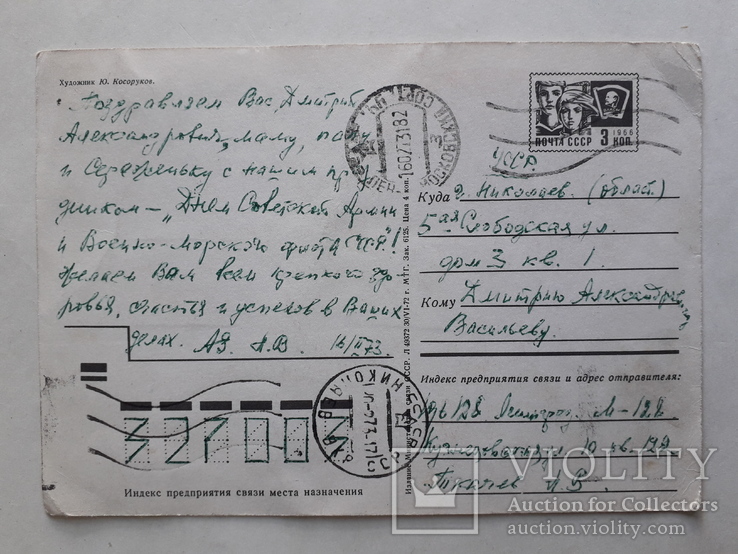 Художник Ю. Косоруков.
Поздравляем Вас, Дмитрий
Александрович, маму, папу
и Сереженьку с нашим пра
здником – „Днем Советской Армии
и Военно-Морского флота СССР"!
Желаем Вам всем крепкого здо
ровья, счастья и успехов в Ваших
делах. 16/II 73.
ПОЧТА СССР 3 КОП.
1966
УССР.
Куда г. Николаев. (област.)
5ая Слободская ул.
дом 3 кв. 1.
Кому Дмитрию Александровичу
Васильеву.
Индекс предприятия связи и адрес отправителя:
196128 М-128
10 кв.
Издание Министерства связи СССР. Л 49372 30/VI-72 г. МПГ. Зак. 6125. Цена 4 коп.
НИКОЛАЕВ
327003
Индекс предприятия связи места назначения
VIOLITY
Auction for Collectors
auction.violity.com